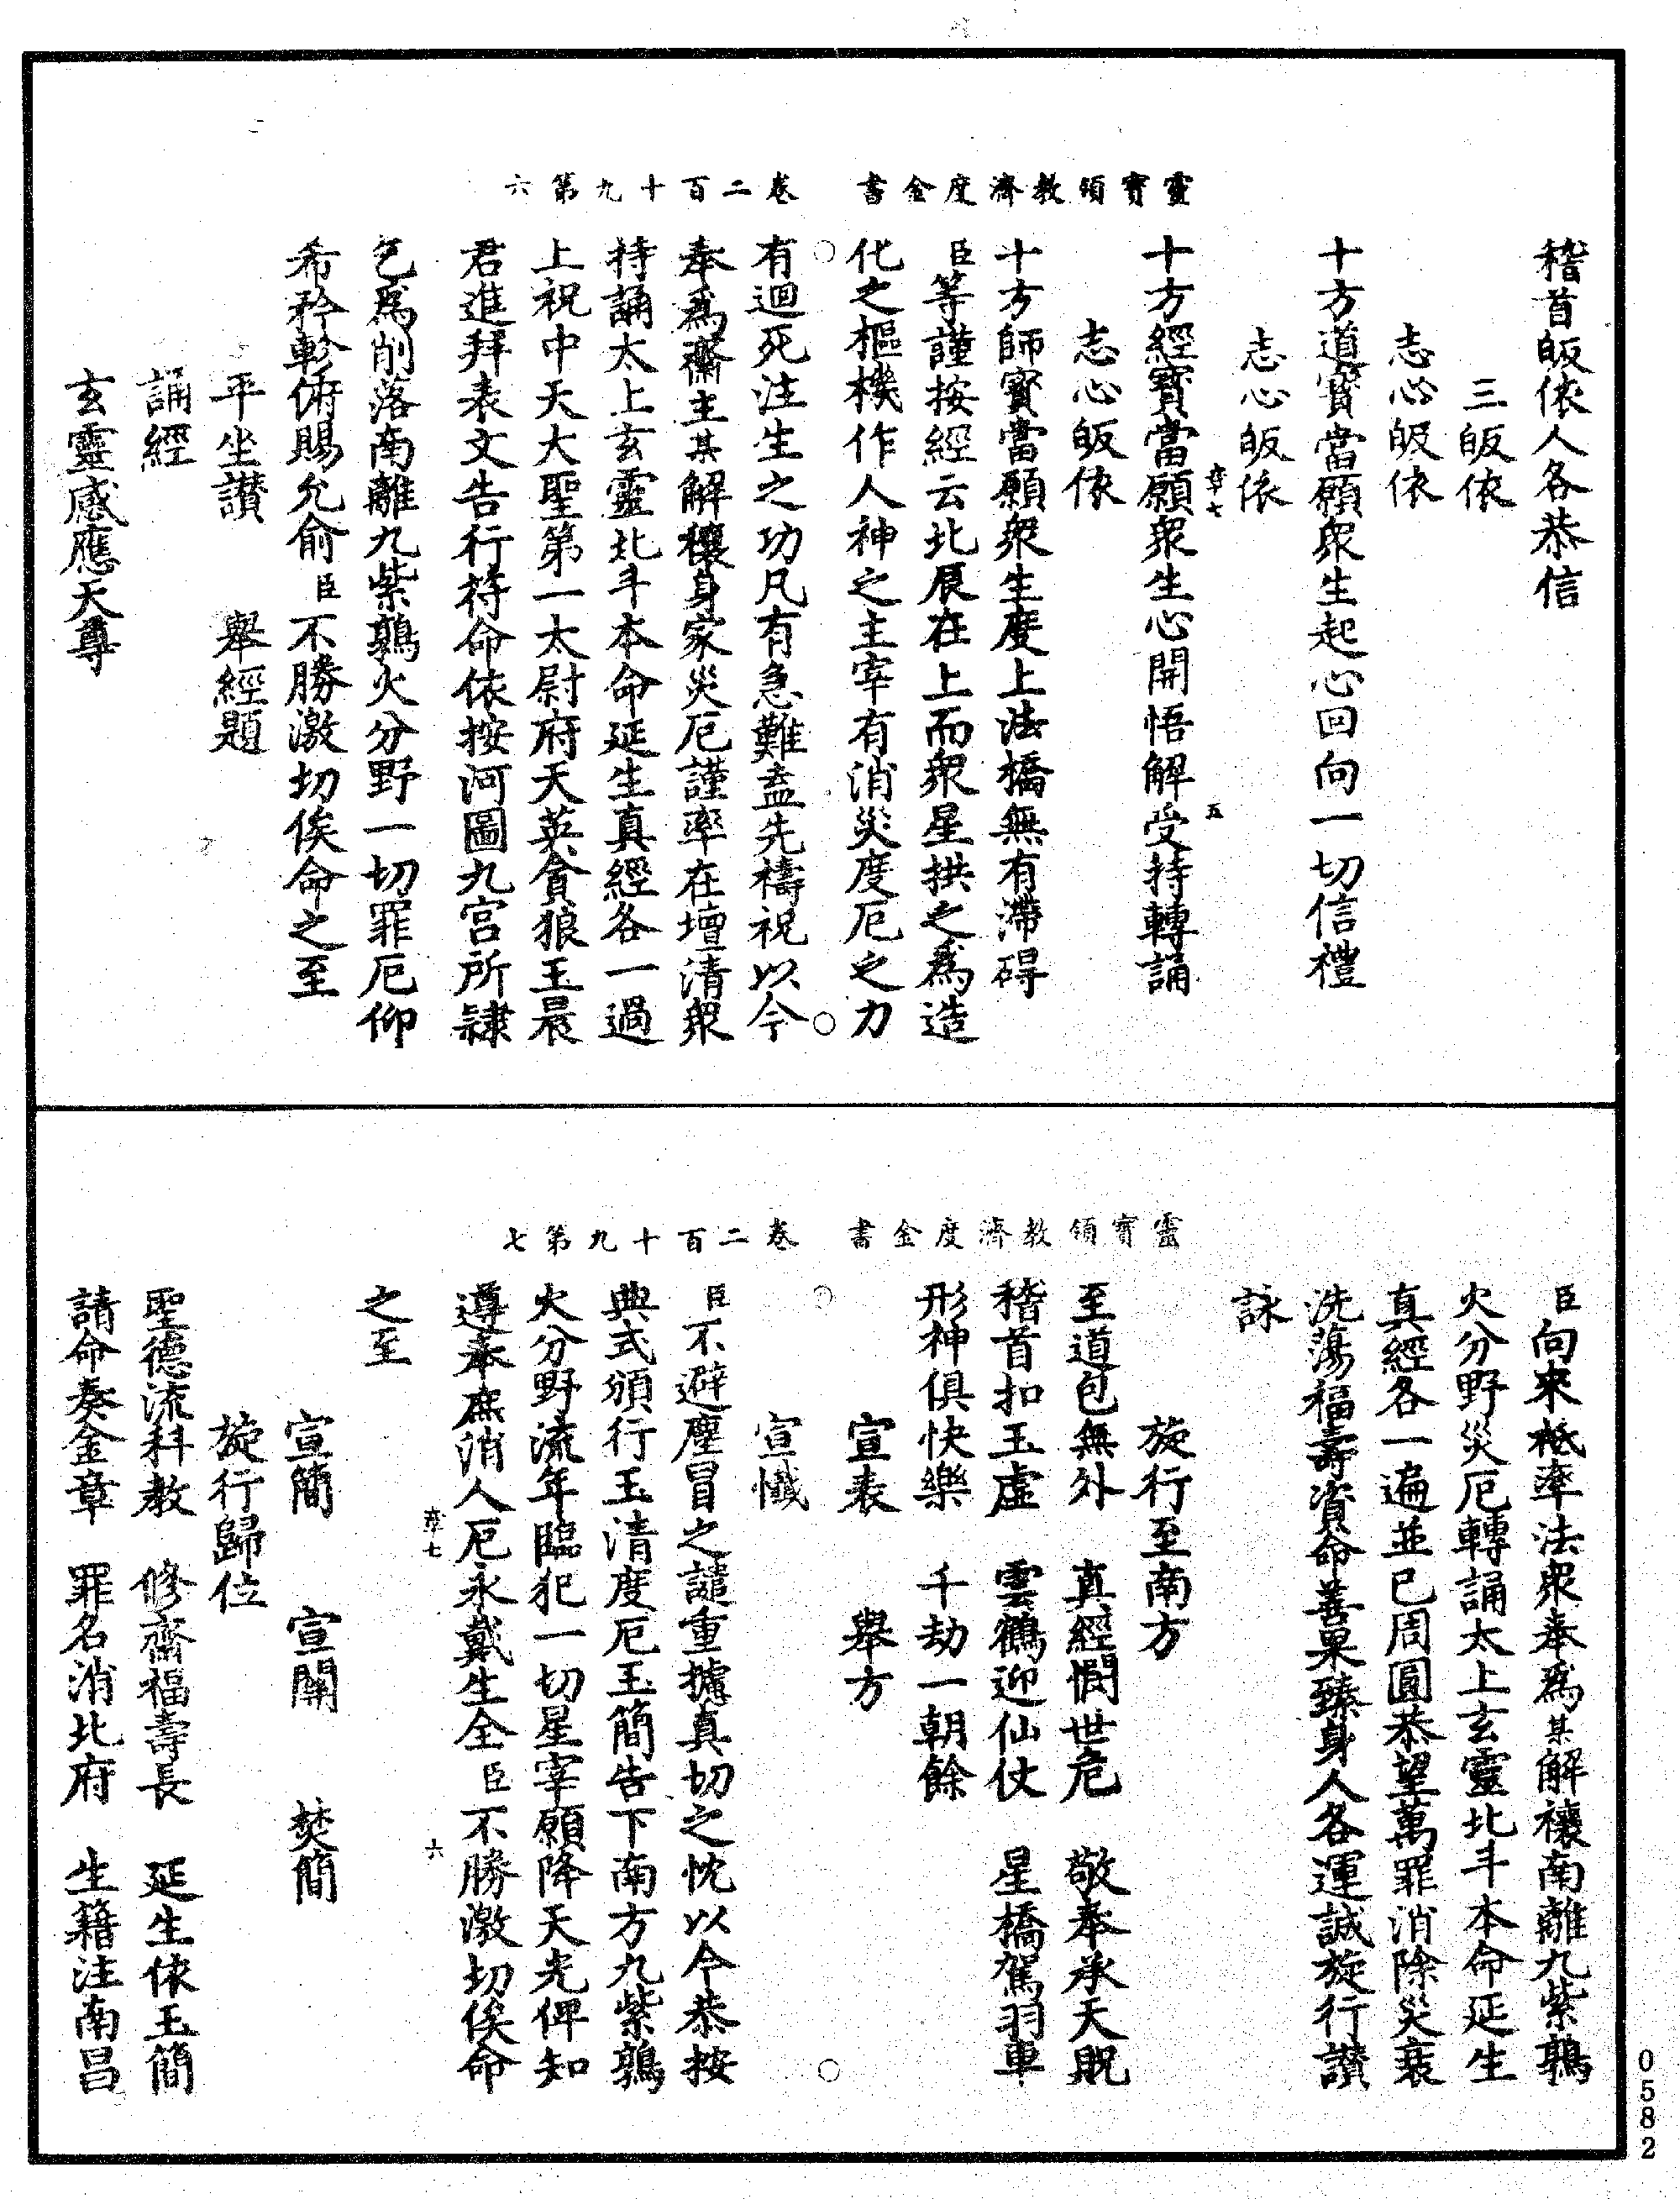 靈寶領教濟度金書　卷二百十九第六
稽首皈依人各恭信
三皈依
志心皈依
十方道寶當願眾生起心回向一切信禮
志心皈依
十方經寶當願眾生心開悟解受持轉誦
志心皈依
十方師寶當願眾生度上法橋無有滯碍
臣等謹按經云北辰在上而眾星拱之為造
化之樞機作人神之主宰有消災度厄之力
有迴死注生之功凡有急難盍先禱祝以今
奉為齋主某解穰身家災厄謹率在壇清眾
持誦太上玄靈北斗本命延生真經各一過
上祝中天大聖第一太尉府天英貪狼玉晨
君進拜表文告行符命依按河圖九宮所隸
乞為削落南離九紫鶉火分野一切罪厄仰
希矜軫俯賜允俞臣不勝激切俟命之至
平坐讃　舉經題
誦經
玄靈感應天尊
靈寶領教濟度金書　卷二百十九第七
臣向來祗率法眾奉為某解禳南離九紫鶉
火分野災厄轉誦太上玄靈北斗本命延生
真經各一遍並已周圓恭望萬罪消除災衰
洗蕩福壽資命善果臻身人各運誠旋行讃
詠
旋行至南方
至道包無外　真經憫世危　敬奉承天貺
稽首扣玉虛　雲鶴迎仙仗　星橋駕羽車
形神俱快樂　千劫一朝餘
宣表　舉方
宣懺
臣不避塵冒之譴重攄真切之忱以今恭按
典式頒行玉清度厄玉簡告下南方九紫鶉
火分野流年臨犯一切星宰願降天光俾知
遵奉庶消人厄永戴生全臣不勝激切俟命
之至
宣簡　宣關　焚簡
旋行歸位
聖德流科教　修齋福壽長　延生依玉簡
請命奏金章　罪名消北府　生籍注南昌
0582